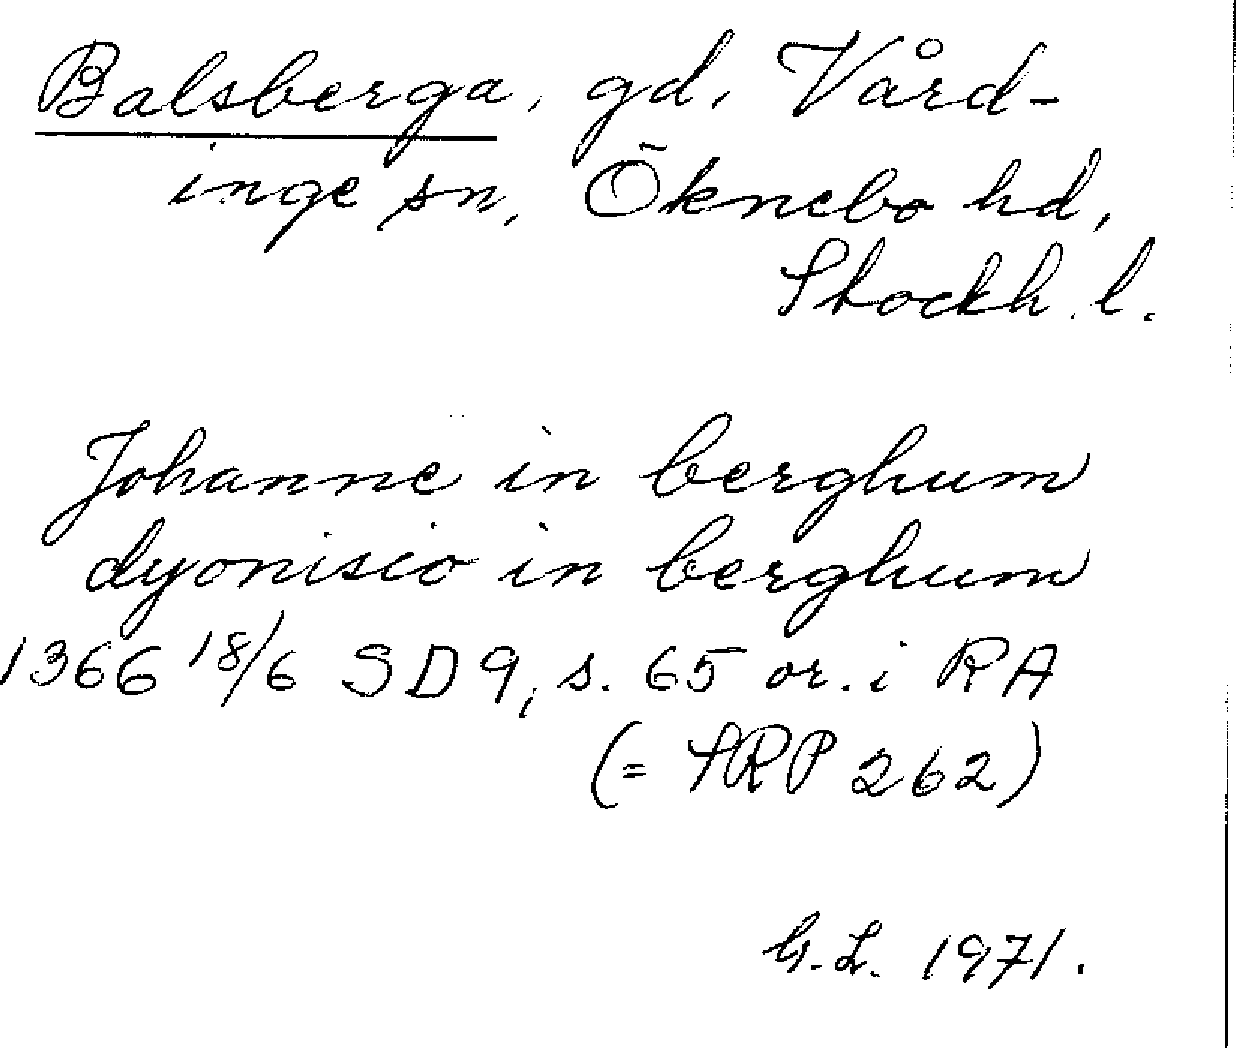 Balsberga, gd, Vård-
inge sn, Öknebo hd,
Stockh. l.
Johanne in berghum
dyonisio in berghum
1366 18/6 SD 9, s. 65 or. i RA
(= SRP 262)
G.L. 1971.